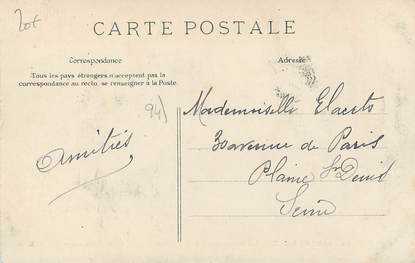 Lot
CARTE POSTALE
Correspondance
Tous les pays étrangers n'acceptent pas la
correspondance au recto, se renseigner à la Poste.
94)
Amitiés
Adresse
Mademoiselle Elaerts
30 avenue de Paris
Plaine St Denis
Seine